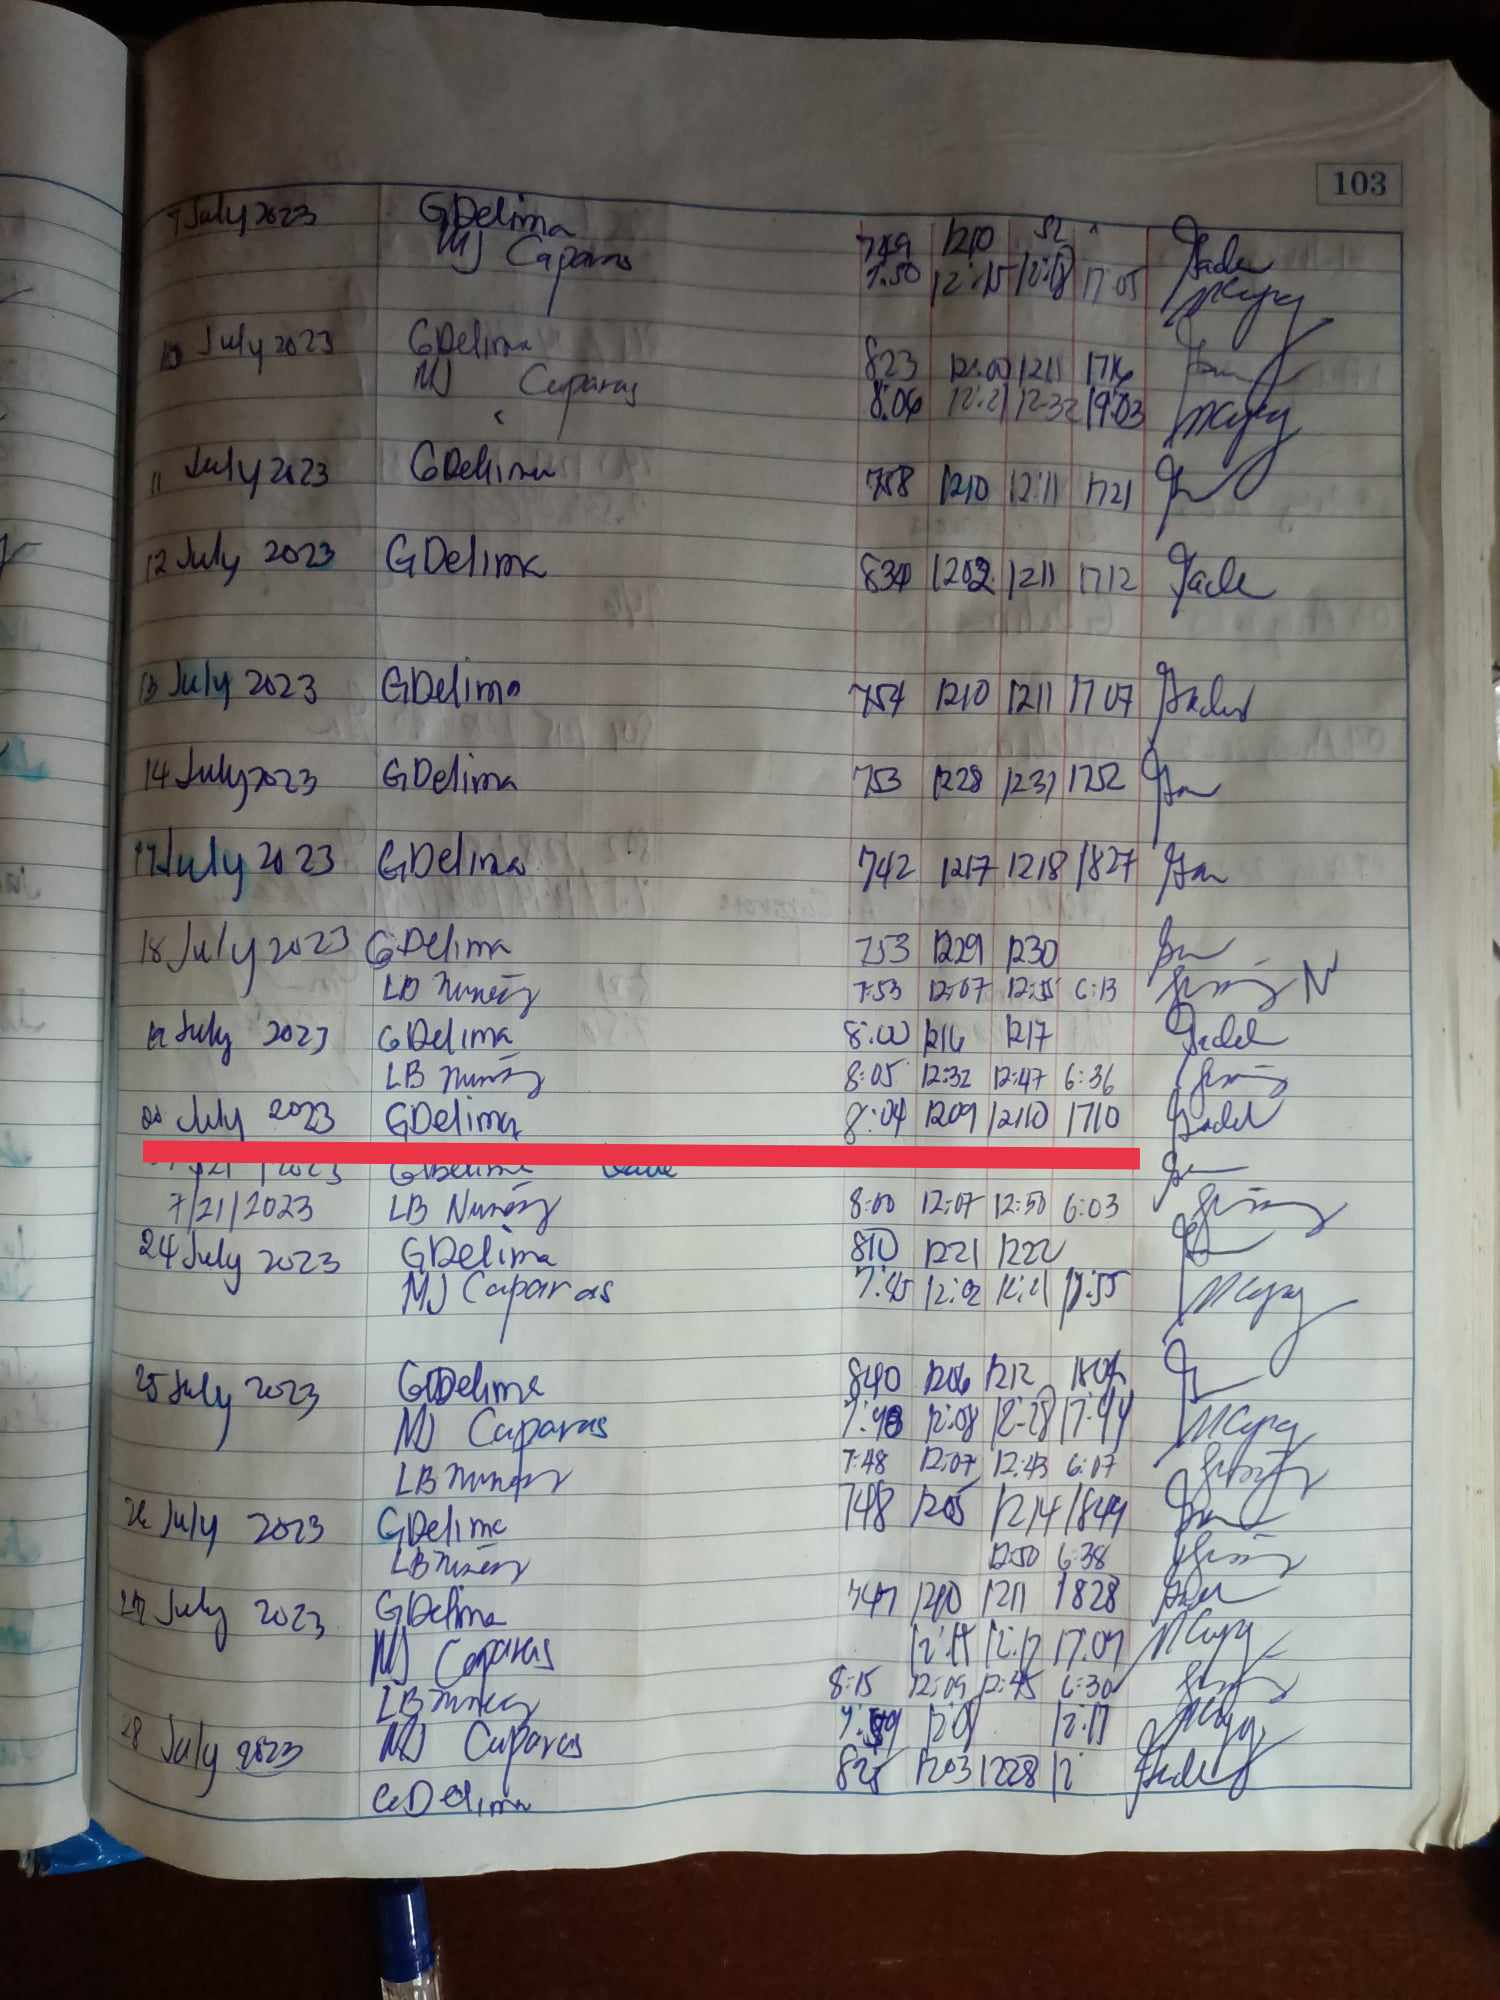 103
7 July 2023 GDelima 749 1210
MJ Caparas 7:50 12:15 12:18 17:05
10 July 2023 GDelima 823 12:00 1211 1716
MJ Caparas 8:06 12:21 12:32 19:03
11 July 2023 GDelima 758 1210 12:11 1721
12 July 2023 GDelima 834 1202 1211 1712 Jade
13 July 2023 GDelima 754 1210 1211 1707
14 July 2023 GDelima 753 1228 1231 1752
17 July 2023 GDelima 742 1217 1218 1827
18 July 2023 GDelima 753 1229 1230
LB Nuñez 7:53 12:07 12:55 6:13
19 July 2023 GDelima 8:00 1216 1217
LB Nuñez 8:05 12:32 12:47 6:36
20 July 2023 GDelima 8:04 1209 12110 1710
7/21/2023 GDelima
7/21/2023 LB Nuñez 8:00 12:07 12:50 6:03
24 July 2023 GDelima 810 1221 1222
MJ Caparas 7:45 12:02 12:21 17:55
25 July 2023 GDelima 840 1206 1212
MJ Caparas 7:48 12:08 12:28 17:44
LB Nuñez 7:48 12:07 12:43 6:07
26 July 2023 GDelima 748 1205 1214 1849
LB Nuñez 12:50 6:38
27 July 2023 GDelima 747 1210 1211 1828
MJ Caparas 12:15 12:17 17:07
LB Nuñez 8:15 12:09 12:45 6:30
28 July 2023 MJ Caparas 12:17
GDelima 825 1203 1228 12